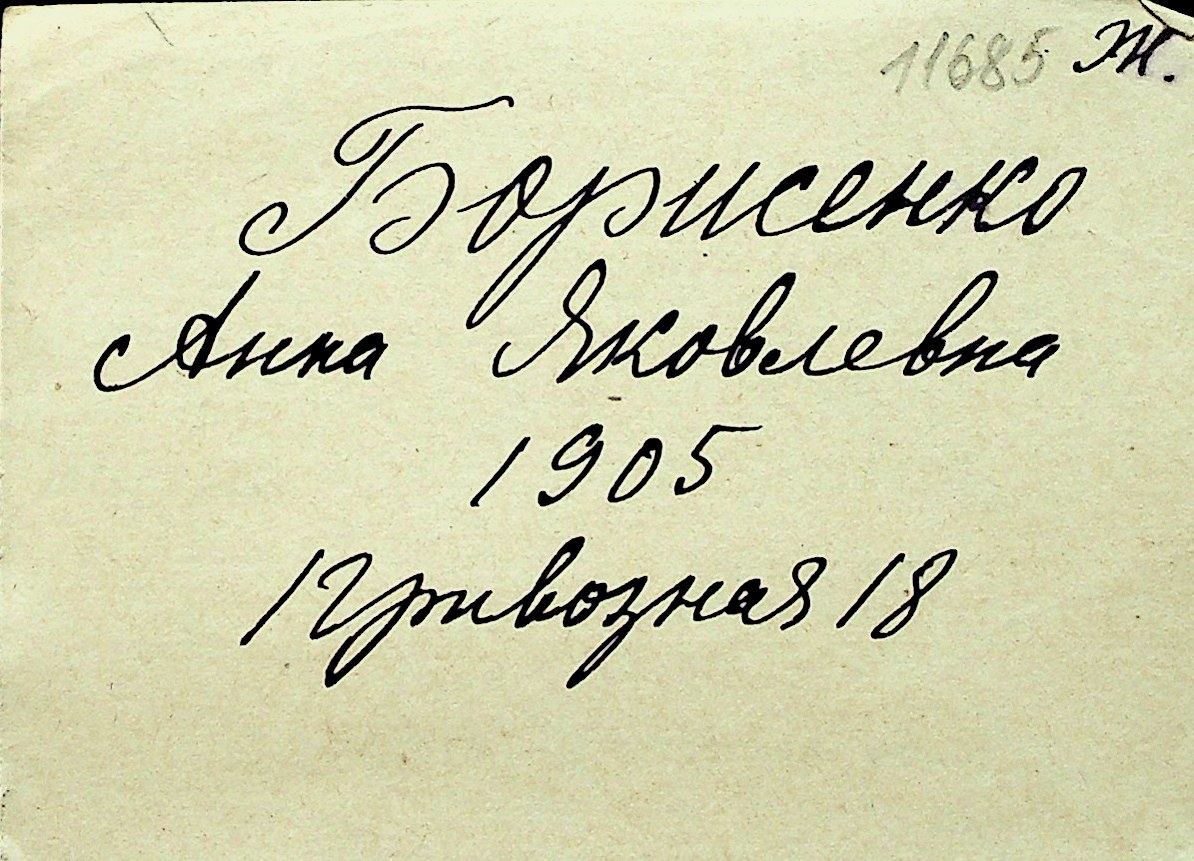 11685 Ж.
Борисенко
Анна Яковлевна
1905
Привозная 18